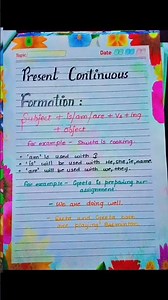 Date
Present Continuous
Formation :
Subject + is/am/are + V₁ + ing
+ object
For example - Shweta is cooking.
"am" is used with I
"is" will be used with He, she, it, name
"are" will be used with we, they.
For example - Geeta is preparing her
assignment
- We are doing well.
- Geeta and Shweta are
not playing badminton